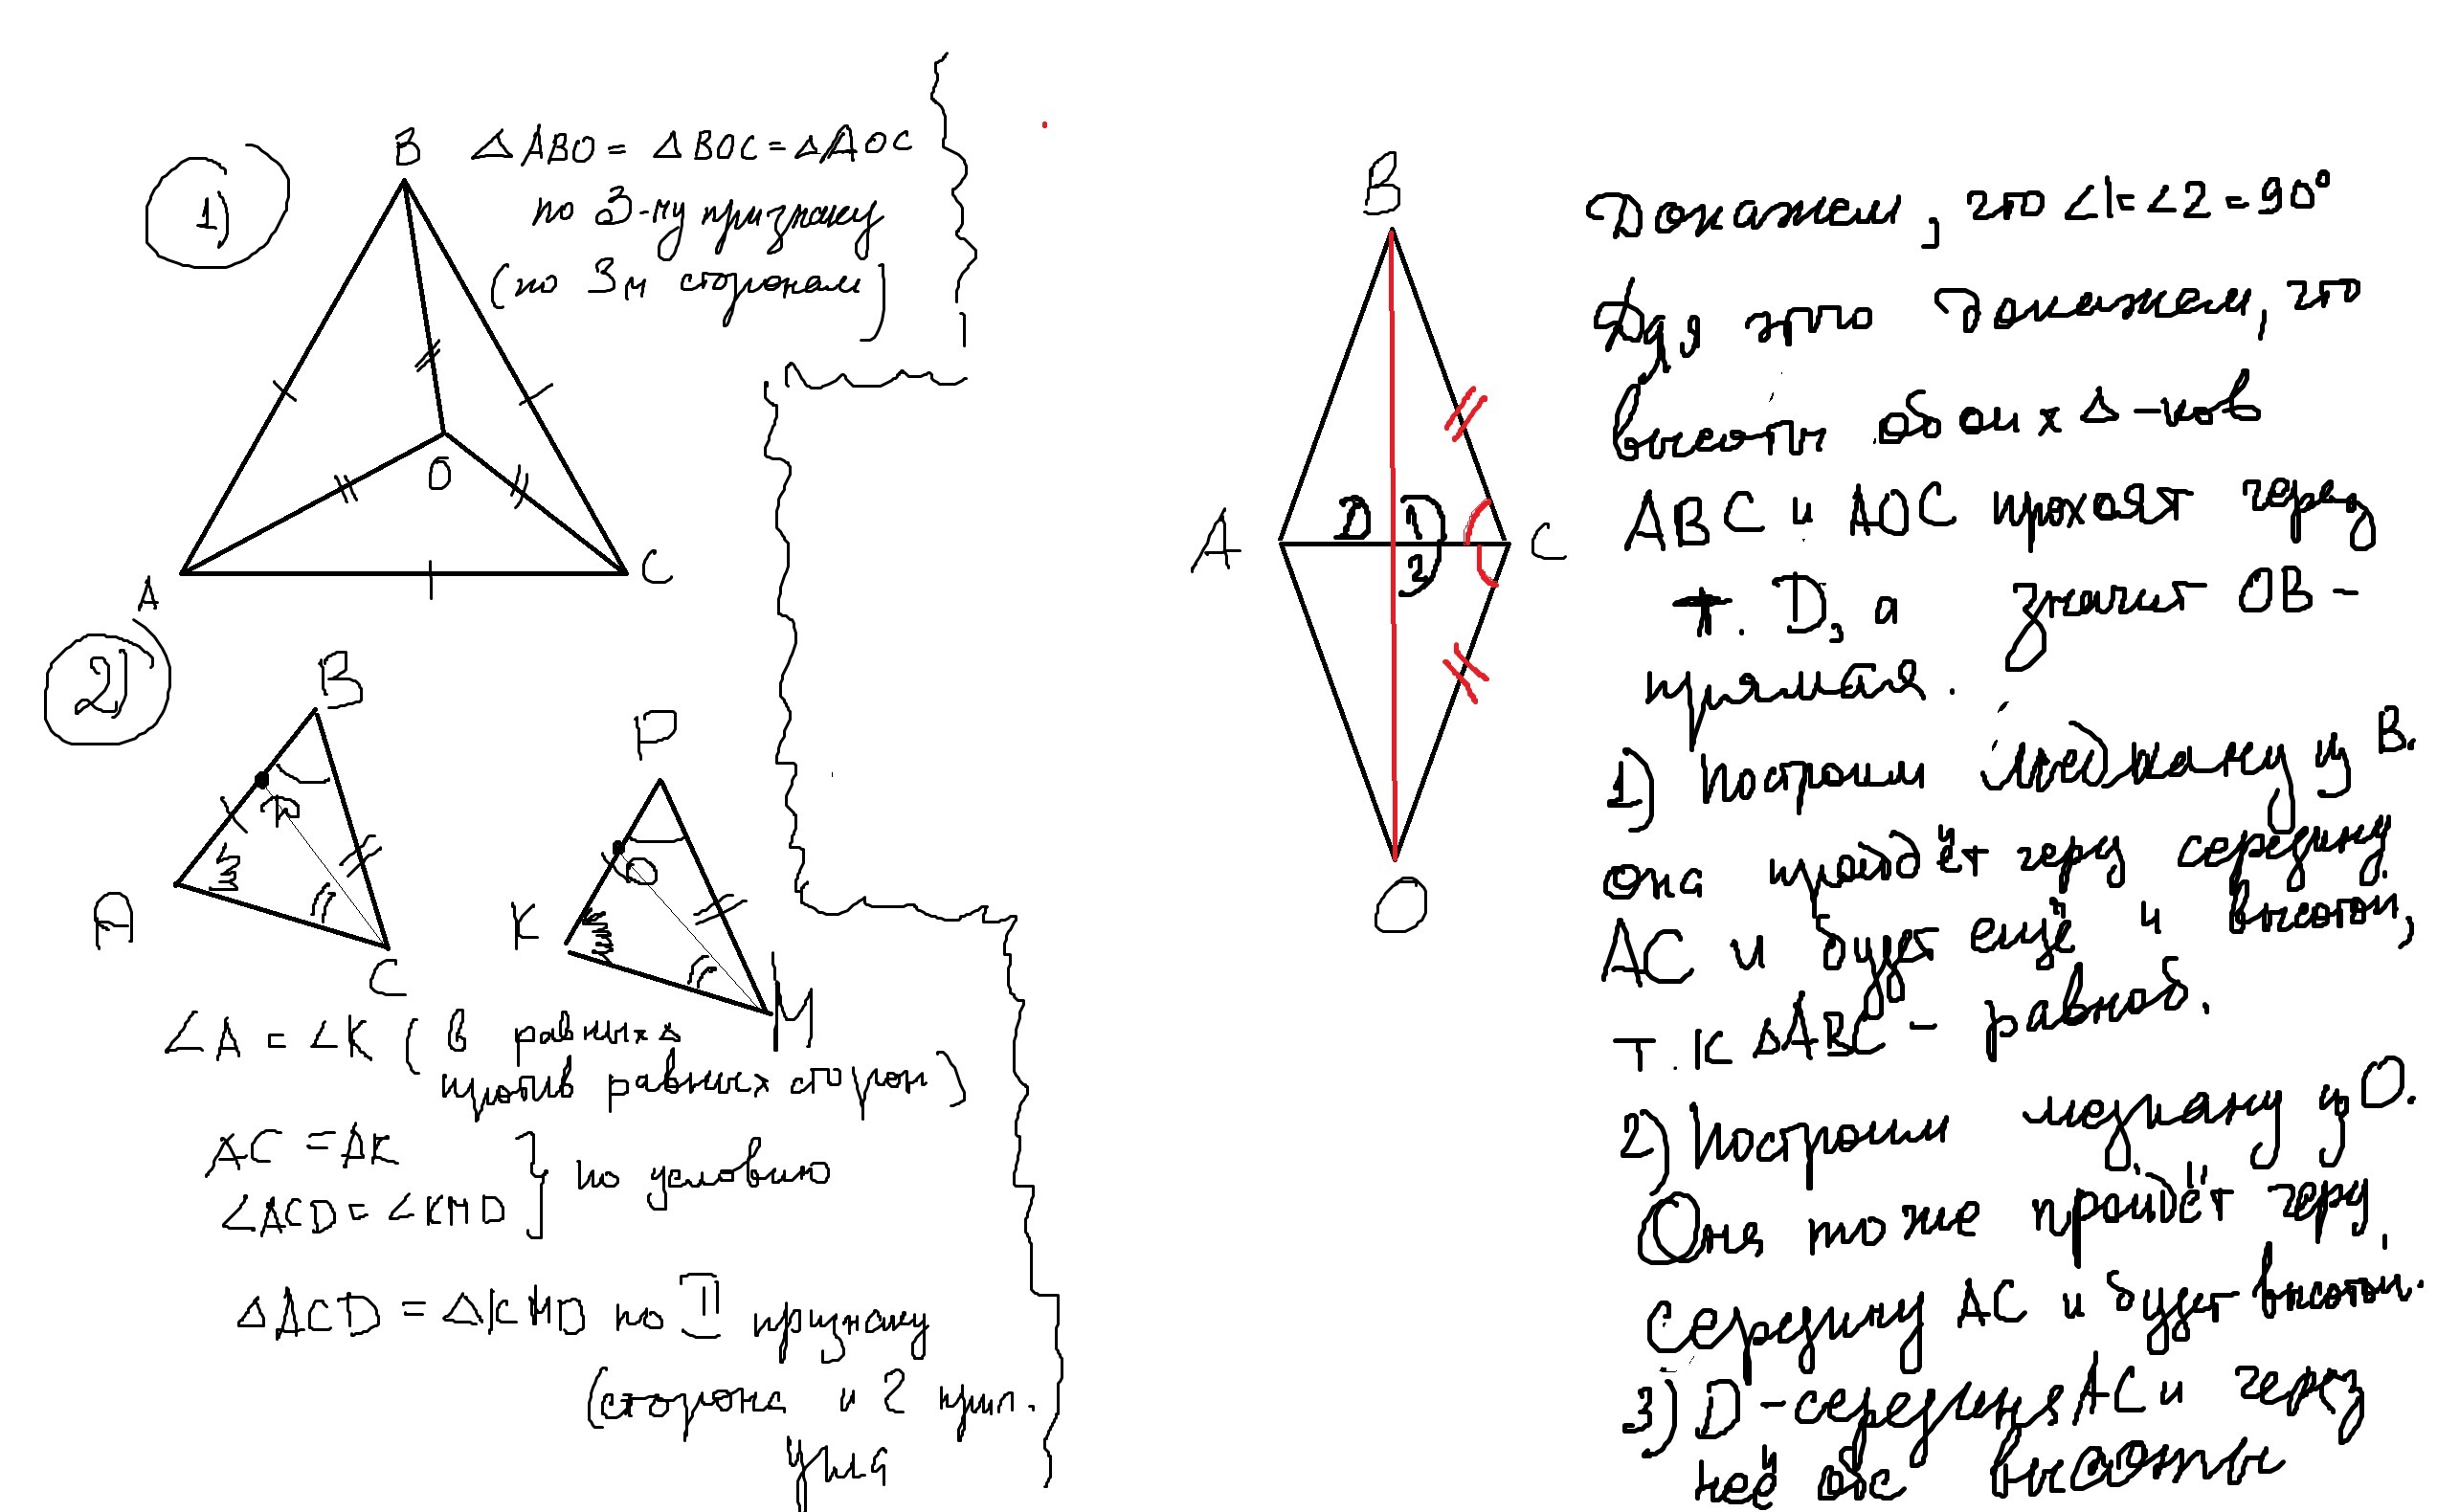 1)
B
△ABO = △BOC = △AOC
по 3-му признаку
(по 3м сторонам)
O
A
C
2)
B
P
D
D
A
K
C
M
∠A = ∠K ( в равных △
против равных сторон)
AC = AK
∠ACD = ∠KMD } по условию
△ACD = △KMD по II признаку
(сторона и 2 прил.
угла
B
A
D
1
2
C
O
Докажем, что ∠1=∠2=90°
Для этого докажем, что
высоты обоих △-ков
ABC и AOC проходят через
т. D, а значит OB –
прямая.
1) Построим медиану из B.
она пройдёт через середину
AC и будет ещё и высотой,
т.к △ABC – равноб.
2) Построим медиану из O.
Она тоже пройдёт через
середину AC и будет высотой.
3) D – середина AC и через
неё обе высоты